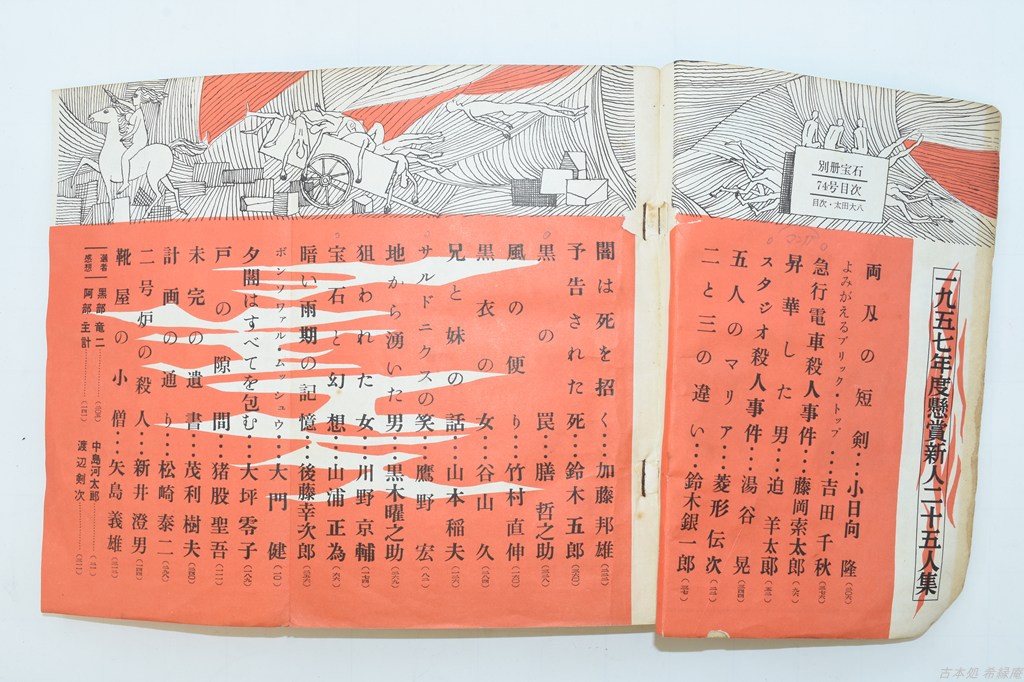 別冊宝石
74号目次
目次・太田大八
一九五七年度懸賞新人二十五人集
両刄の短剣‥小日向 隆
よみがえるブリック・トップ‥吉田千秋
急行電車殺人事件‥藤岡索太郎
昇華した男‥迫 羊太郎
スタジオ殺人事件‥湯谷 晃
五人のマリア‥菱形伝次
二と三の違い‥鈴木銀一郎
闇は死を招く‥加藤邦雄
予告された死‥鈴木五郎
黒の罠‥膳哲之助
風の便り‥竹村直伸
黒衣の女‥谷山 久
兄と妹の話‥山本稲夫
サルドニクスの笑‥鷹野 宏
地から湧いた男‥黒木曜之助
狙われた女‥川野京輔
宝石と幻想‥山浦正為
暗い雨期の記憶‥後藤幸次郎
ボンソワァル・ムッシュウ‥大門 健
夕闇はすべてを包む‥大坪零子
戸の隙間‥猪股聖吾
未完の遺書‥茂利樹夫
計画の通り‥松崎泰二
二号炉の殺人‥新井澄男
靴屋の小僧‥矢島義雄
選者感想
黒部竜二
中島河太郎
阿部主計
渡辺剣次
古本処 希縁庵